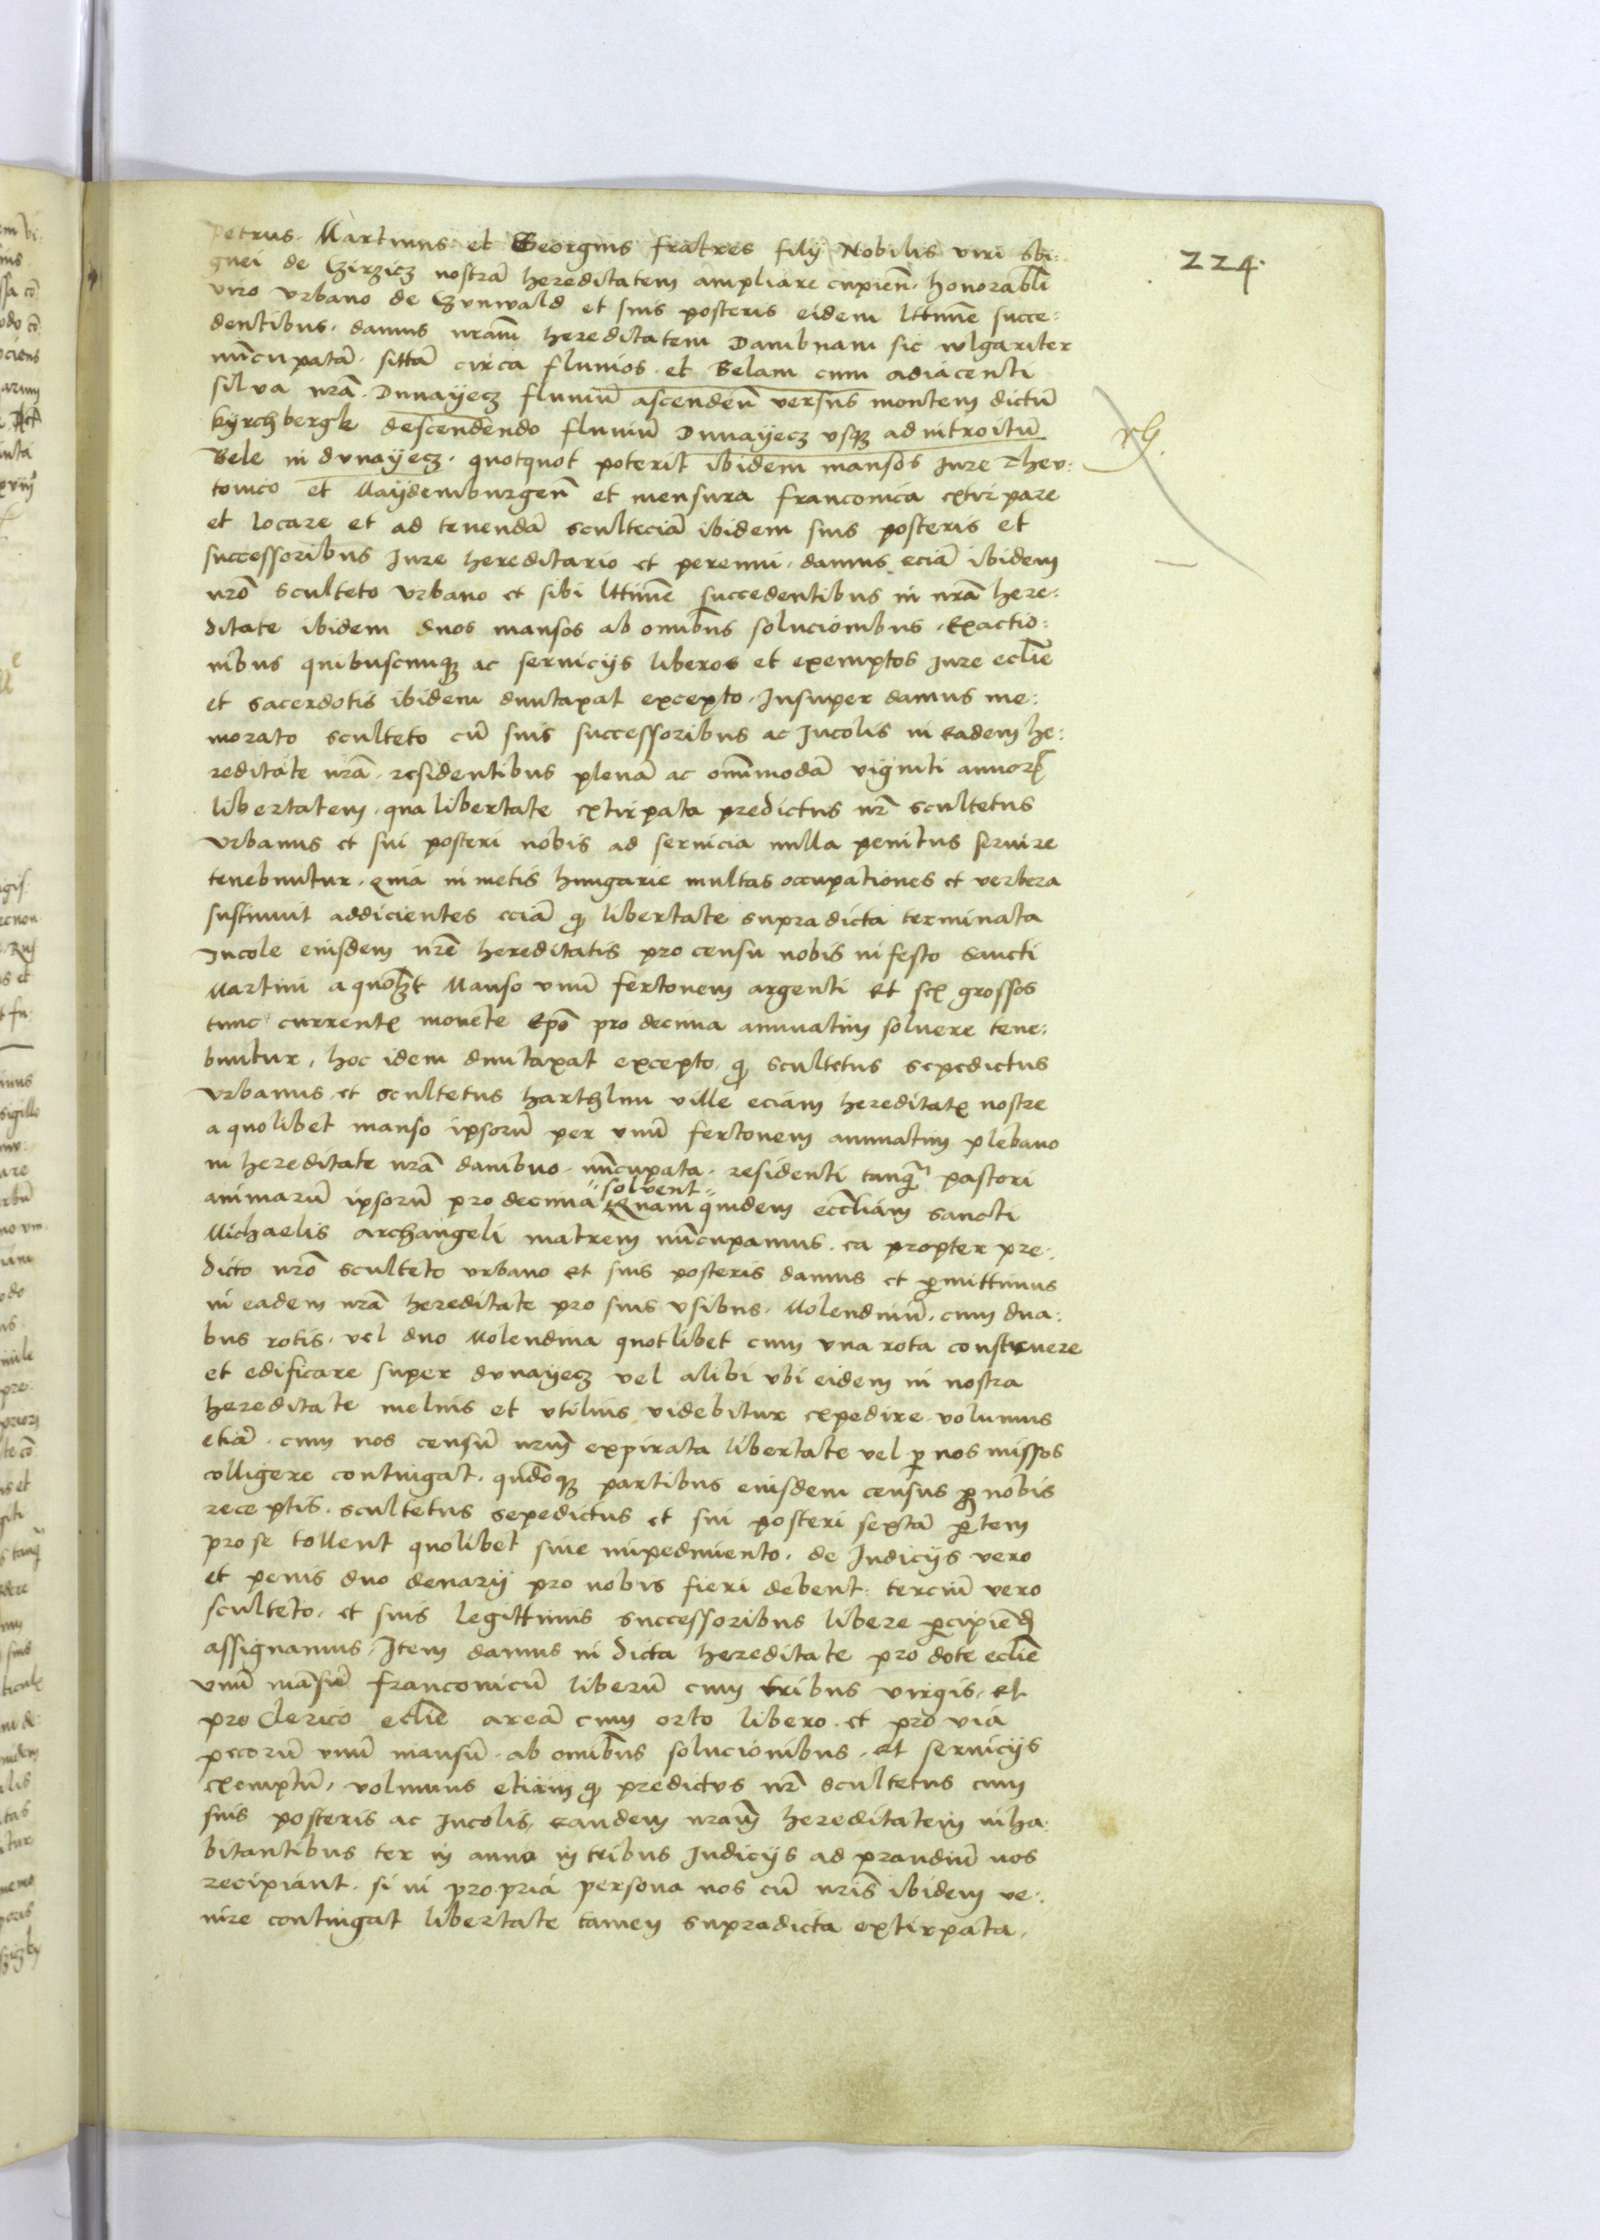 224.
Petrus. Martinus et Georgius fratres filij Nobilis viri sbi:
gnei de Czirzicz nostrā hereditatem ampliare cupien̄. honorabli
viro Vrbano de Grunwald et suis posteris eidem lttimē succe:
dentibus. damus nr̄am hereditatem Dambnam sic wlgariter
nūcupatā. sittā circa fluuios. et Belam cum adiacenti
silua nr̄a. Dunayecz fluuiū ascendeñ versus montem dictū
kyrchbergk descendendo fluuiū Dunayecz vsqз ad introitū
Bele in dunayecz. quotquot poterit ibidem mansos Jure Theu:
tonico et Maydemburgeñ et mensura franconica extirpare
et locare et ad tenendā sculteciā ibidem suis posteris et
successoribus Jure hereditario et perenni. damus eciā ibidem
nr̄o sculteto Vrbano et sibi lttimē succedentibus in nr̄a here:
ditate ibidem duos mansos ab omībus solucionibus. Exactio:
nibus quibuscunqз ac seruicijs liberos et exemptos Jure eclīe
et sacerdotis ibidem duntaxat excepto. Insuper damus me:
morato sculteto cū suis successoribus ac Incolis in Eadem he:
reditate nr̄a. residentibus plenā ac omīmodā viginti annorꝝ
libertatem. qua libertate extirpata predictus nr̄ scultetus
Vrbanus et sui posteri nobis ad seruicia nulla penitus seruire
tenebuntur. Quia in metis hungarie multas occupationes et verbera
sustinuit addicientes eciā ꝙ libertate supradicta terminata
Incole eiusdem nr̄e hereditatis pro censu nobis in festo sancti
Martini a quolꝫt Manso vnū fertonem argenti Et sex grossos
tunc currentꝭ monete Epō pro decima annuatim soluere tene:
buntur. hoc idem duntaxat excepto. ꝙ scultetus sepedictus
Vrbanus. et scultetus hartzlini ville eciam hereditatꝭ nostre
a quolibet manso ipsorū per vnū fertonem annuatim plebano
in hereditate nr̄a dambno. nūcupata. residenti tanqʒ pastori
animarū ipsorū pro decima "solvent" Quam quidem ecclīam sancti
Michaelis archangeli matrem nūcupamus. ea propter pre:
dicto nr̄o sculteto vrbano Et suis posteris damus et ꝑmittimus
in eadem nr̄a hereditate pro suis vsibus. Molendinū. cum dua:
bus rotis. vel duo Molendina quotlibet cum vna rota construere
et edificare super dunayecz vel alibi vbi eidem in nostra
hereditate melius et vtilius videbitur expedire. volumus
etiā. cum nos censū nr̄m expirata libertate vel ꝑ nos missos
colligere contingat. quīdoqз partibus eiusdem census ꝑ nobis
receptis. scultetus sepedictus et sui posteri sextā ꝑtem
pro se tollent quolibet sine impedimento. de Iudicijs vero
et penis duo denarij pro nobis fieri debent. terciū vero
sculteto. et suis legittimis successoribus libere ꝑcipiend
assignamus. Item damus in dicta hereditate pro dote eclīe
vnū mansū franconicū liberū cum tribus virgis. Et
pro Clerico eclīe areā cum orto libero. et pro via
pecorū vnū mansū. ab omībus solucionibus. Et seruicijs
exemptū. volumus etiam ꝙ predictus nr̄ scultetus cum
suis posteris ac Incolis. Eandem nr̄am hereditatem inha:
bitantibus ter in anno in tribus Iudicijs ad prandiū nos
recipiant. si in propria persona nos cū nr̄is ibidem ve:
nire contingat libertate tamen supradicta extirpata.